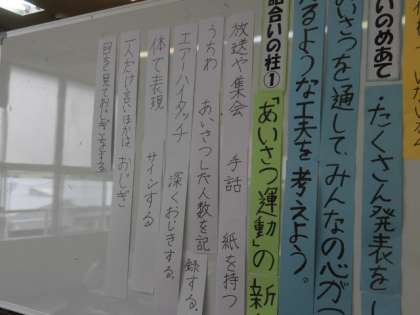 いのめあて
たくさん発表をし
いさつを通して、みんなの心がつ
るような工夫を考えよう。
話合いの柱①
「あいさつ運動」の新
放送や集会 手話 紙を持つ
うちわ あいさつした人数を記録する。
エアーハイタッチ 深くおじぎする。
体で表現 サインする
一人だけ言いほかは、おじぎ
目を見ておじぎをする